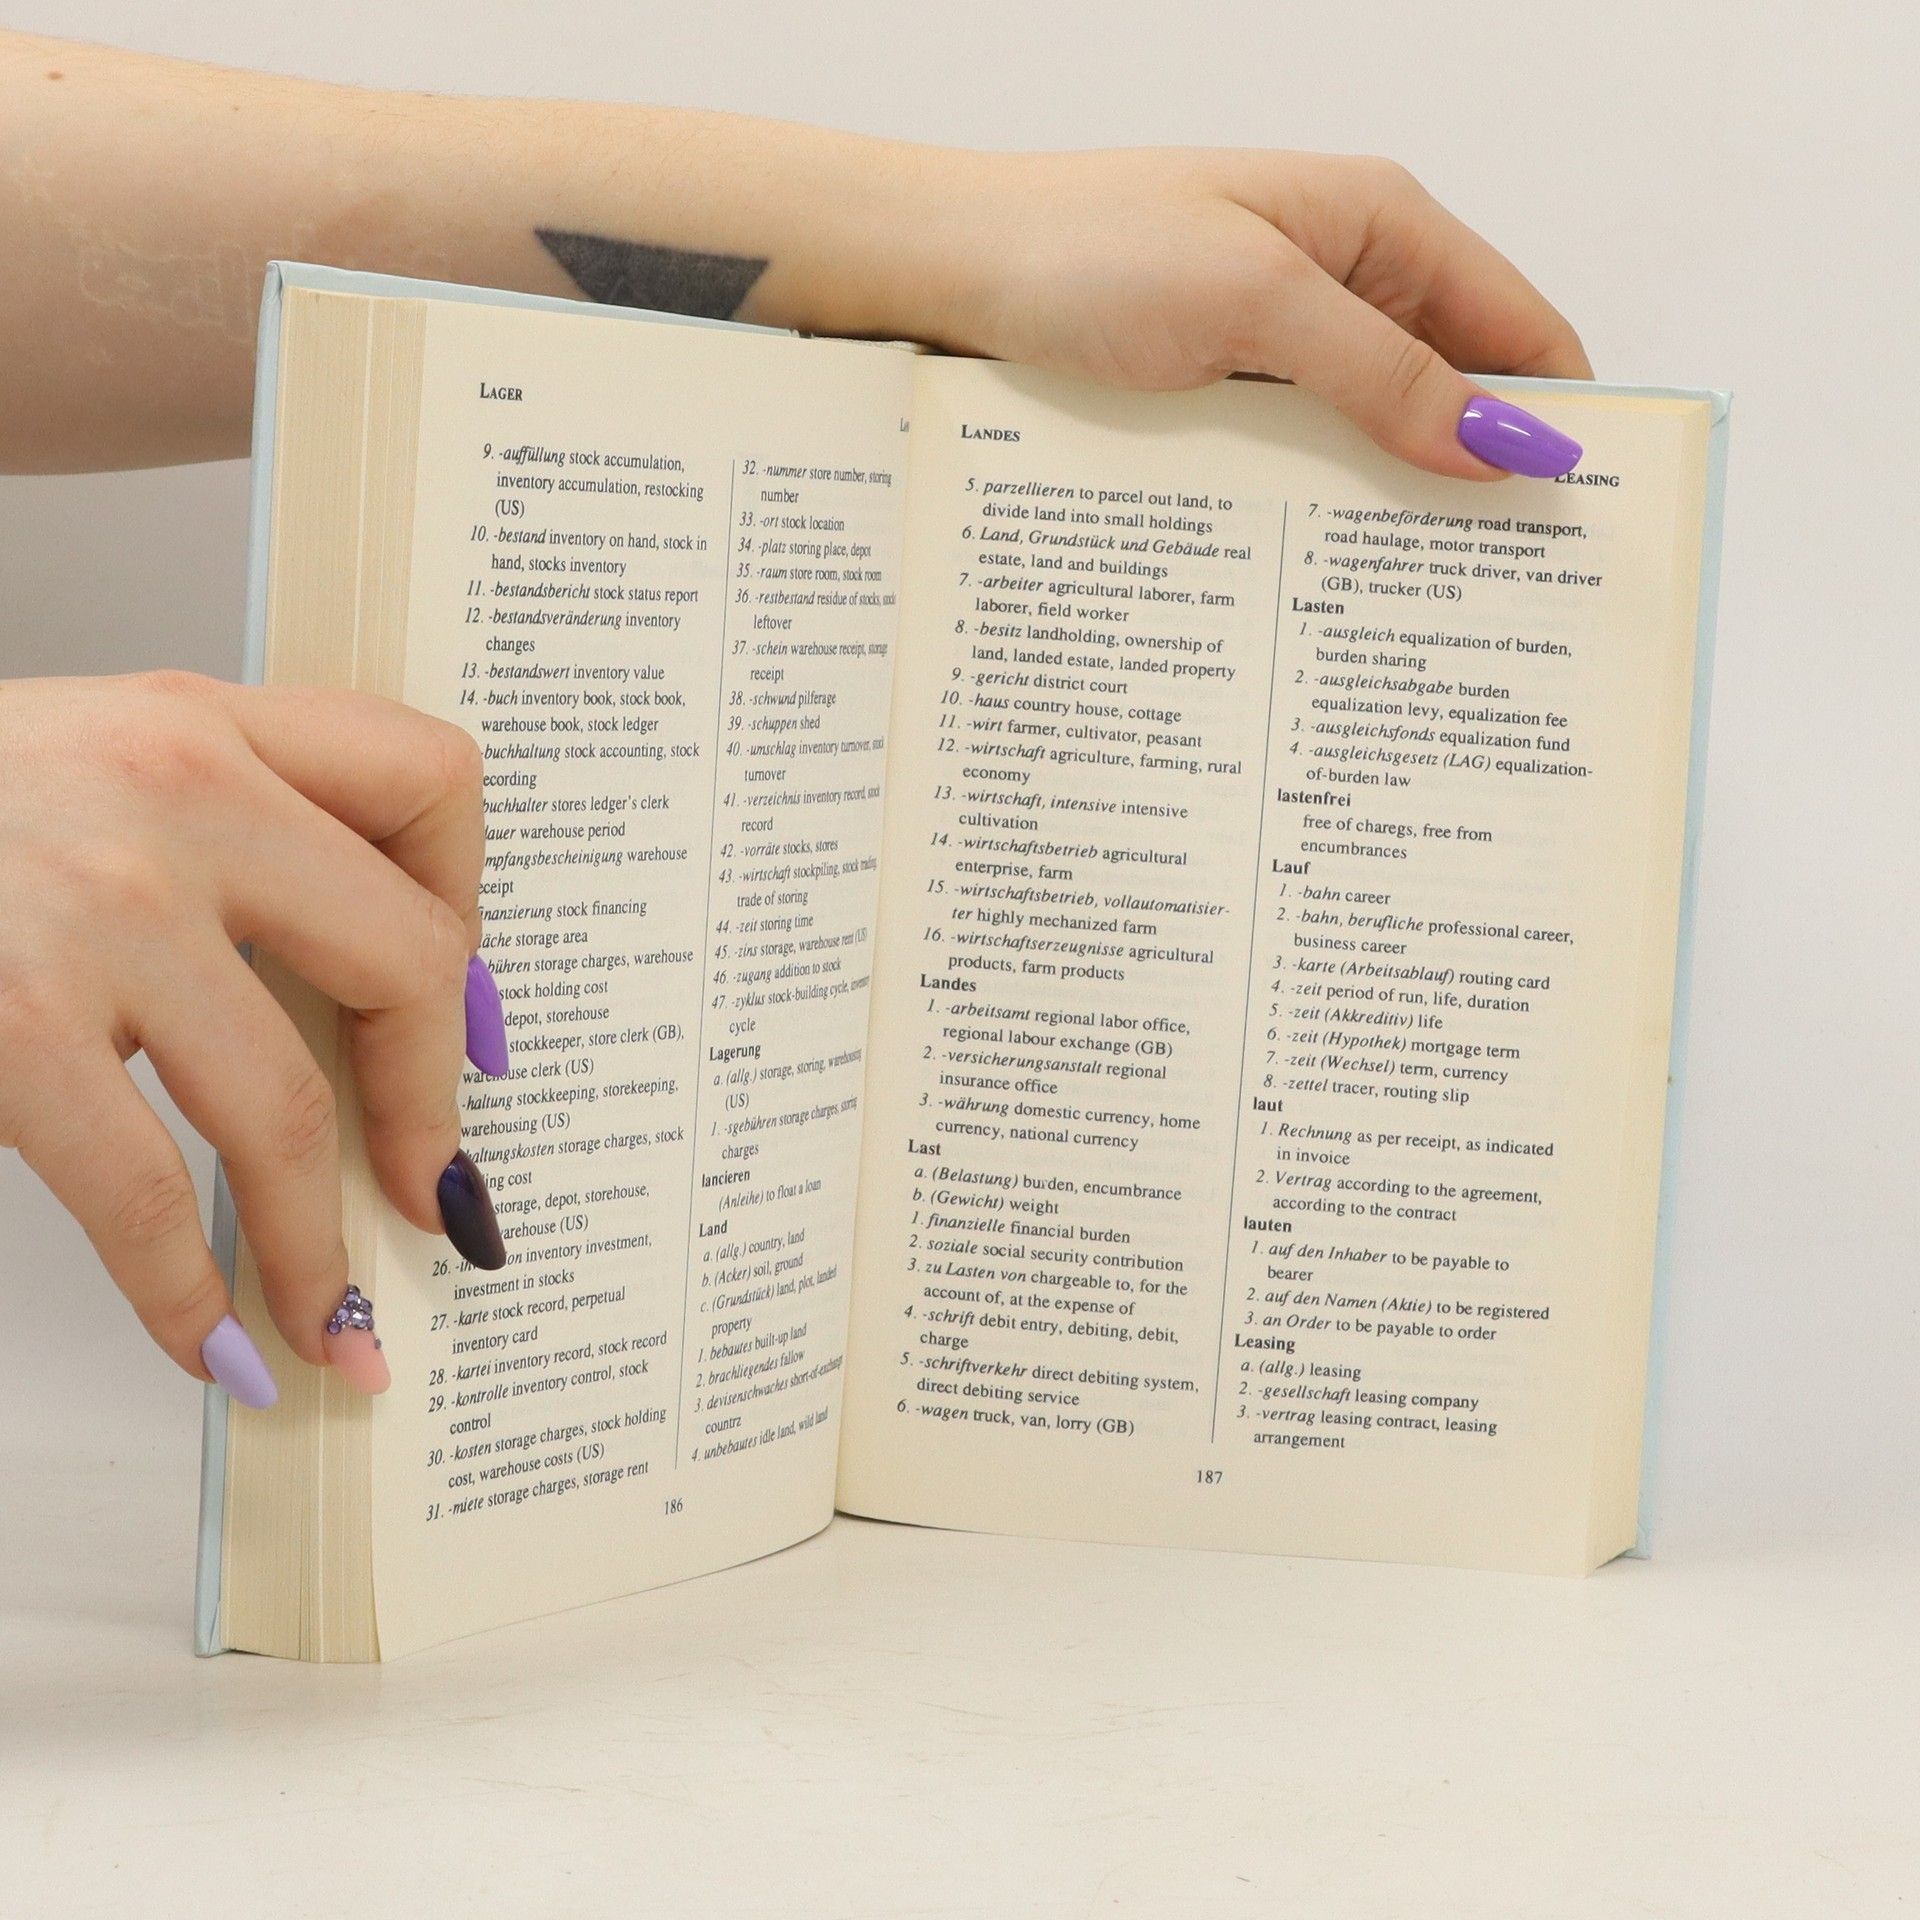 LAGER
9. -auffüllung stock accumulation,
inventory accumulation, restocking
(US)
10. -bestand inventory on hand, stock in
hand, stocks inventory
11. -bestandsbericht stock status report
12. -bestandsveränderung inventory
changes
13. -bestandswert inventory value
14. -buch inventory book, stock book,
warehouse book, stock ledger
-buchhaltung stock accounting, stock
ecording
buchhalter stores ledger's clerk
lauer warehouse period
mpfangsbescheinigung warehouse
eceipt
finanzierung stock financing
äche storage area
bühren storage charges, warehouse
stock holding cost
depot, storehouse
stockkeeper, store clerk (GB),
warehouse clerk (US)
-haltung stockkeeping, storekeeping,
warehousing (US)
haltungskosten storage charges, stock
ing cost
storage, depot, storehouse,
warehouse (US)
26. inventory investment,
investment in stocks
27. -karte stock record, perpetual
inventory card
28. -kartei inventory record, stock record
29. -kontrolle inventory control, stock
control
30. -kosten storage charges, stock holding
cost, warehouse costs (US)
31. -miete storage charges, storage rent
32. -nummer store number, storing
number
33. -ort stock location
34. -platz storing place, depot
35. -raum store room, stock room
36. -restbestand residue of stocks,
leftover
37. -schein warehouse receipt, storage
receipt
38. -schwund pilferage
39. -schuppen shed
40. -umschlag inventory turnover, stock
turnover
41. -verzeichnis inventory record, stock
record
42. -vorräte stocks, stores
43. -wirtschaft stockpiling, stock trading,
trade of storing
44. -zeit storing time
45. -zins storage, warehouse rent (US)
46. -zugang addition to stock
47. -zyklus stock-building cycle, inventory
cycle
Lagerung
a. (allg.) storage, storing, warehousing
(US)
1. -sgebühren storage charges, storing
charges
lancieren
(Anleihe) to float a loan
Land
a. (allg.) country, land
b. (Acker) soil, ground
c. (Grundstück) land, plot, landed
property
1. bebautes built-up land
2. brachliegendes fallow
3. devisenschwaches short-of-exchange
countrz
4. unbebautes idle land, wild land
186
LANDES
LEASING
5. parzellieren to parcel out land, to
divide land into small holdings
6. Land, Grundstück und Gebäude real
estate, land and buildings
7. -arbeiter agricultural laborer, farm
laborer, field worker
8. -besitz landholding, ownership of
land, landed estate, landed property
9. -gericht district court
10. -haus country house, cottage
11. -wirt farmer, cultivator, peasant
12. -wirtschaft agriculture, farming, rural
economy
13. -wirtschaft, intensive intensive
cultivation
14. -wirtschaftsbetrieb agricultural
enterprise, farm
15. -wirtschaftsbetrieb, vollautomatisier-
ter highly mechanized farm
16. -wirtschaftserzeugnisse agricultural
products, farm products
Landes
1. -arbeitsamt regional labor office,
regional labour exchange (GB)
2. -versicherungsanstalt regional
insurance office
3. -währung domestic currency, home
currency, national currency
Last
a. (Belastung) burden, encumbrance
b. (Gewicht) weight
1. finanzielle financial burden
2. soziale social security contribution
3. zu Lasten von chargeable to, for the
account of, at the expense of
4. -schrift debit entry, debiting, debit,
charge
5. -schriftverkehr direct debiting system,
direct debiting service
6. -wagen truck, van, lorry (GB)
7. -wagenbeförderung road transport,
road haulage, motor transport
8. -wagenfahrer truck driver, van driver
(GB), trucker (US)
Lasten
1. -ausgleich equalization of burden,
burden sharing
2. -ausgleichsabgabe burden
equalization levy, equalization fee
3. -ausgleichsfonds equalization fund
4. -ausgleichsgesetz (LAG) equalization-
of-burden law
lastenfrei
free of charegs, free from
encumbrances
Lauf
1. -bahn career
2. -bahn, berufliche professional career,
business career
3. -karte (Arbeitsablauf) routing card
4. -zeit period of run, life, duration
5. -zeit (Akkreditiv) life
6. -zeit (Hypothek) mortgage term
7. -zeit (Wechsel) term, currency
8. -zettel tracer, routing slip
laut
1. Rechnung as per receipt, as indicated
in invoice
2. Vertrag according to the agreement,
according to the contract
lauten
1. auf den Inhaber to be payable to
bearer
2. auf den Namen (Aktie) to be registered
3. an Order to be payable to order
Leasing
a. (allg.) leasing
2. -gesellschaft leasing company
3. -vertrag leasing contract, leasing
arrangement
187